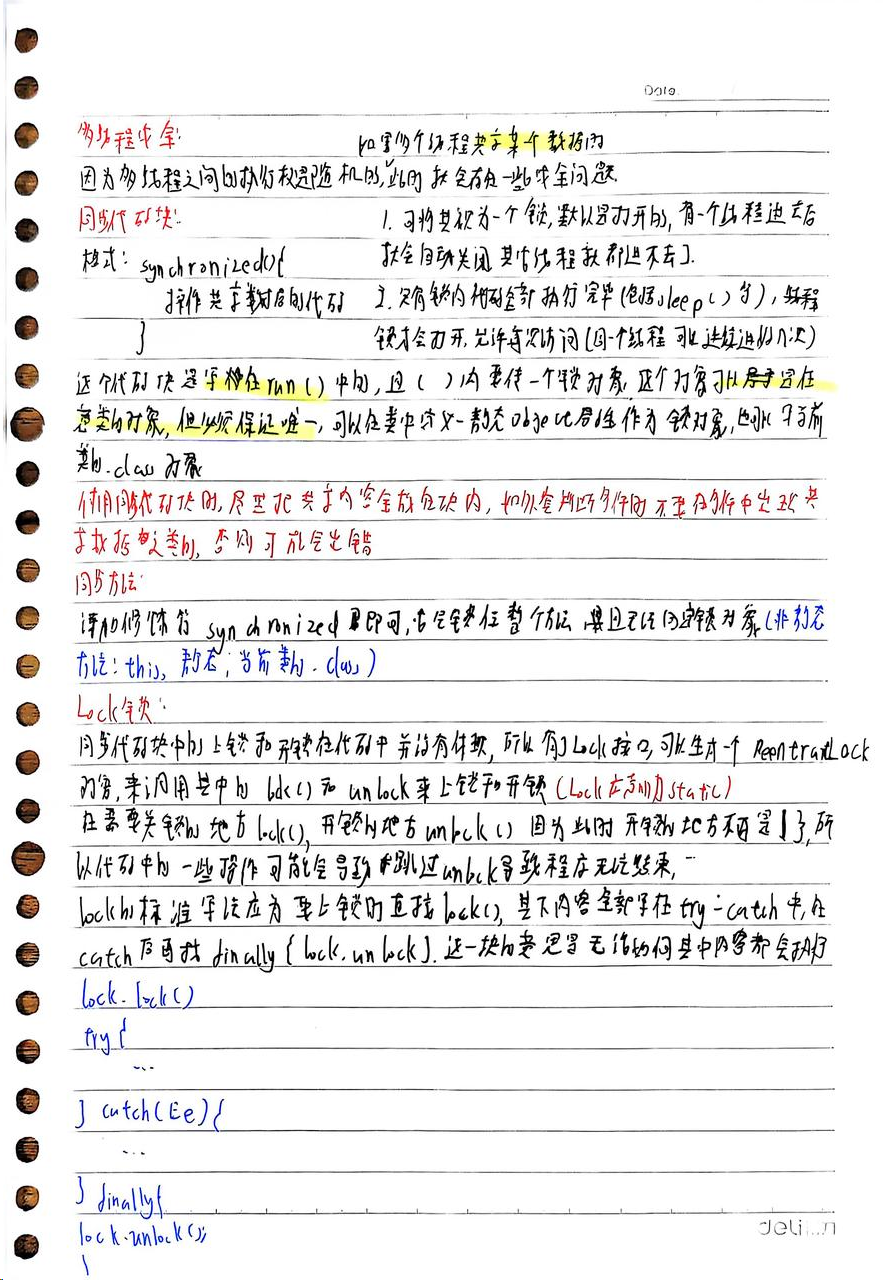 Date.
多线程安全:
如果多个线程共享某个数据时
因为多线程之间的执行权是随机的,此时就会存在一些安全问题.
同步代码块:
1. 可将其视为一个锁,默认是打开的,有一个线程进去后
格式: synchronized(){
就会自动关闭 其它线程就都进不去了.
操作共享数据的代码
2. 只有锁内代码全部执行完毕(包括sleep()等),
}
锁才会打开,允许再次访问(同一个线程可以连续进好几次)
这个代码块是写在run()中的,且()内要传一个锁对象,这个对象可以是任
意类的对象,但必须保证唯一,可以在类中定义一静态Object属性作为锁对象,也可以写当前
类的.class对象
使用同步代码块时,尽量把共享内容全放在块内,如必须判断条件时不要在条件中出现共
享数据之类的,否则可能会出错
同步方法:
添加修饰符synchronized即可,它是锁住整个方法 并且无法自定锁对象(非静态
方法:this, 静态;当前类的.class)
Lock锁:
同步代码块中的上锁和开锁在代码中并没有体现,所以有了Lock接口,可以生成一个ReentrantLock
对象,来调用其中的lock()和unlock来上锁和开锁(Lock应声明为static)
在需要关锁的地方lock(),开锁的地方unlock() 因为此时开锁的地方不再是}了,所
以代码中的一些操作可能会导致跳过unlock导致程序无法结束,
lock的标准写法应为 要上锁时直接lock(),其下内容全部写在try-catch中,在
catch后再接finally{lock.unlock}.这一块的意思是无论如何其中内容都会执行
lock.lock()
try{
...
} catch(E e){
...
} finally{
lock.unlock();
}
deli